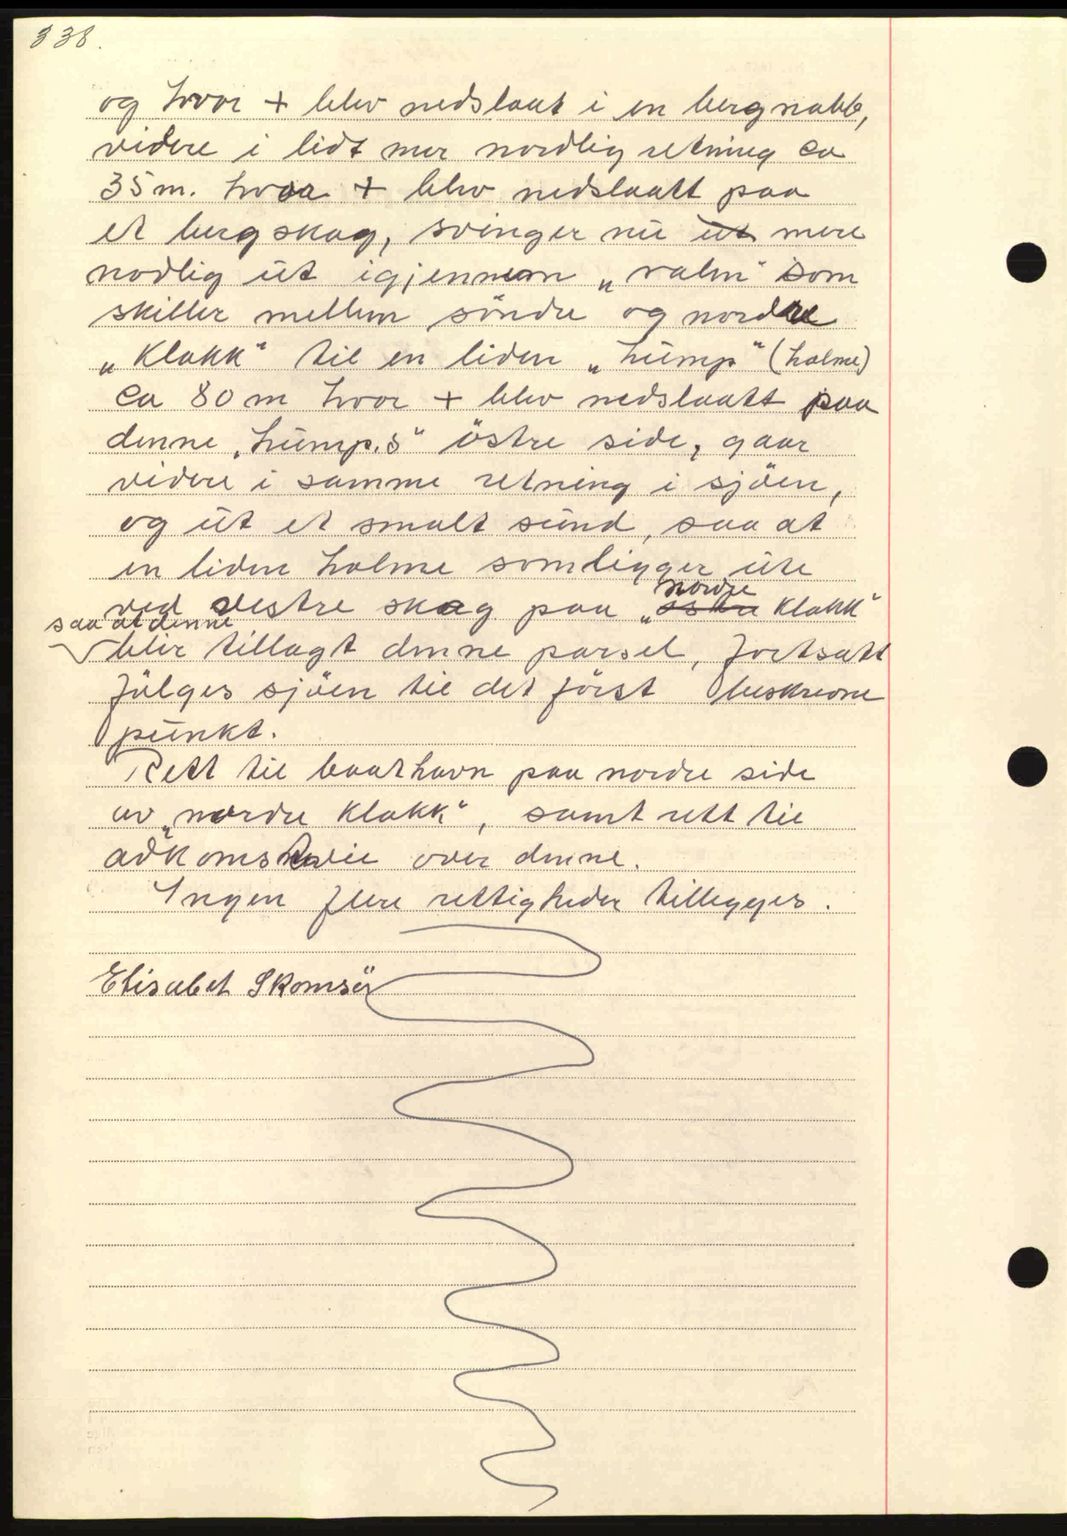 338.
og hvor + blev nedslaat i en bergnabb,
videre i lidt mer nordlig retning ca
35 m. hvor + blev nedslaatt paa
et bergskag, svinger nu ut mere
nodlig ut igjennem „valen" som
skiller mellem söndre og nordre
„Klakk" til en liden „hump" (holme)
ca 80 m hvor + blev nedslaatt paa
denne „hump.s" östre side, gaar
videre i samme retning i sjöen,
og ut et smalt sund, saa at
en liden holme som ligger ute
nordre
ved vestre skag paa „östre Klakk"
saa at denne
blir tillagt denne parsel, fortsatt
fölges sjöen til det först beskrevne
punkt.
Rett til baathavn paa nordre side
av „nordre Klakk", samt rett til
adkomstvei over denne.
Ingen flere rettigheder tillegges.
Elisabet Skomsör